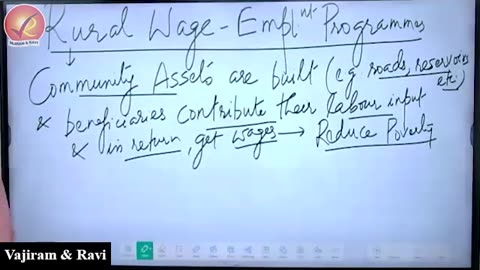 VAJIRAM & RAVI
Rural Wage-Emplnt Programmes
Community Assets are built (e.g roads, reservoirs etc.)
& beneficiaries contribute their labour input
& in return, get wages → Reduce Poverty
Vajiram & Ravi